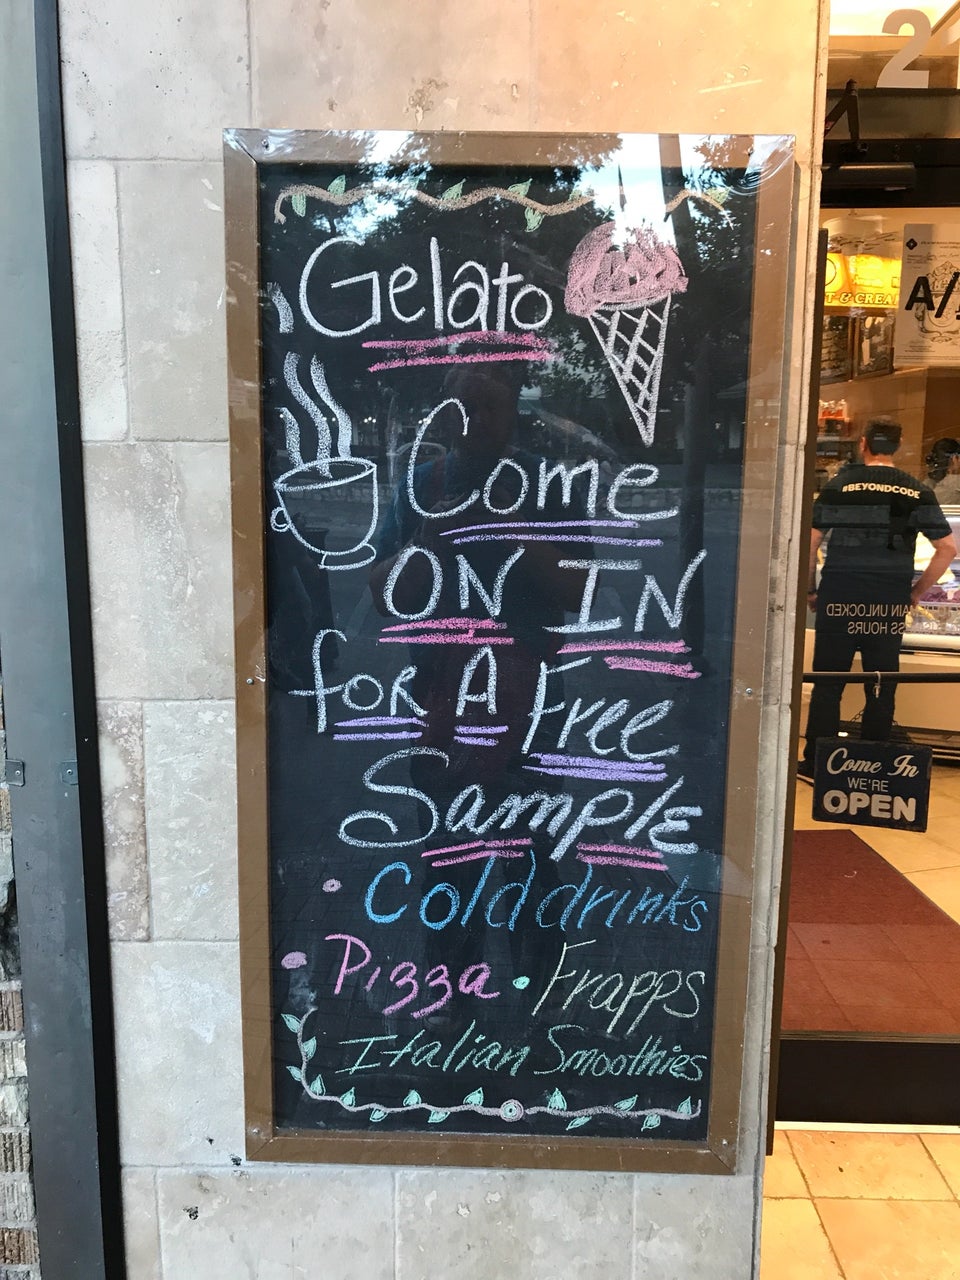 Gelato
Come
ON IN
for A Free
Sample
Cold drinks
Pizza • Frapps
Italian Smoothies
2
T & CREA
A/
#BEYONDCODE
MAIN UNLOCKED
SS HOURS
Come In
WE'RE
OPEN